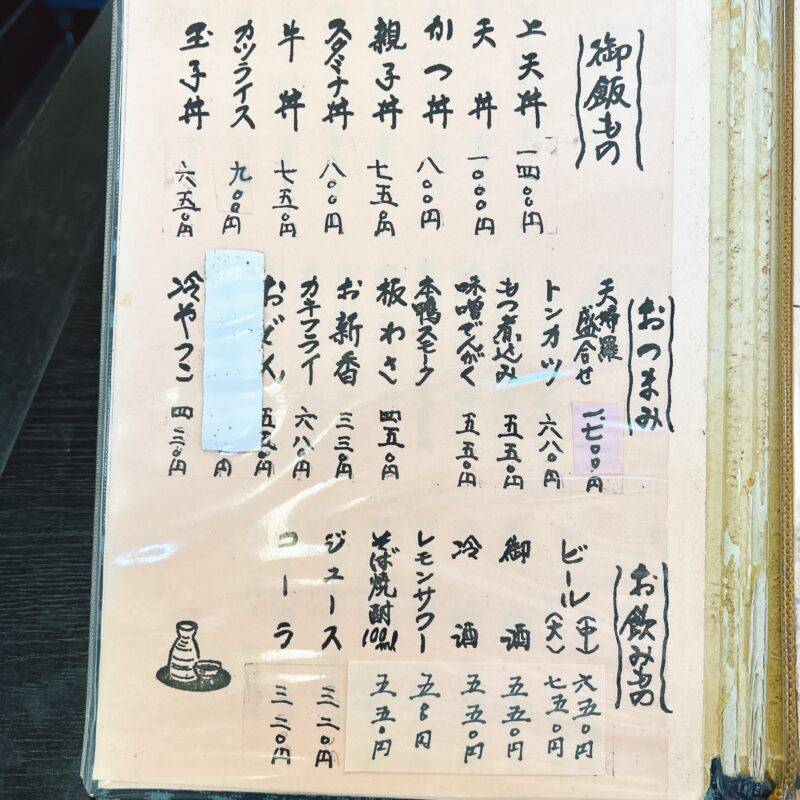 御飯もの
上天丼 一四〇〇円
天丼 一〇〇〇円
かつ丼 八〇〇円
親子丼 七五〇円
スタミナ丼 八〇〇円
牛丼 七五〇円
カツライス 九〇〇円
玉子丼 六五〇円
おつまみ
天婦羅
盛合せ 一.七〇〇円
トンカツ 六八〇円
もつ煮込み 五五〇円
味噌でんがく 五五〇円
本鴨スモーク
板わさ 四五〇円
お新香 三三〇円
カキフライ 六八〇円
おでん 五五〇円
円
冷やっこ 四三〇円
お飲みもの
ビール(中) 六五〇円
(大) 七五〇円
御酒 五五〇円
冷酒 五五〇円
レモンサワー 五〇〇円
そば焼酎100ml 五五〇円
ジュース 三二〇円
コーラ 三二〇円